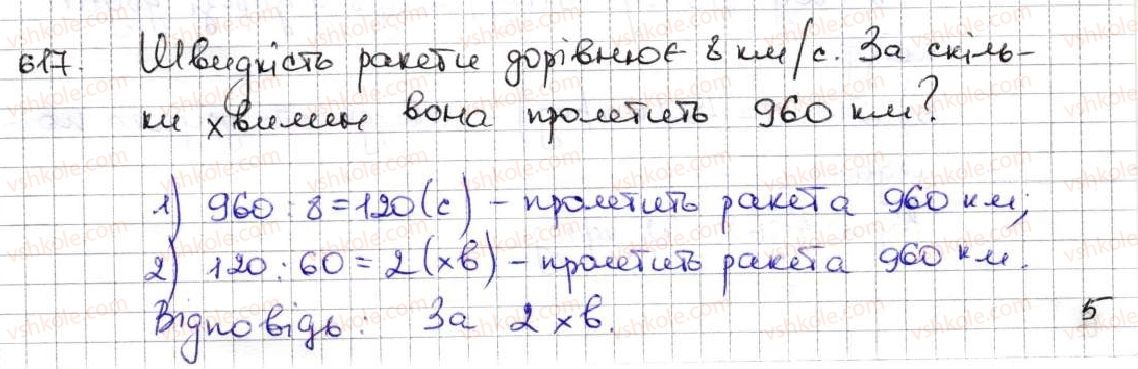 617. Швидкість ракети дорівнює 8 км/с. За скіль-
ки хвилин вона пролетить 960 км?
1) 960 : 8 = 120 (с) – пролетить ракета 960 км;
2) 120 : 60 = 2 (хв) – пролетить ракета 960 км.
Відповідь: За 2 хв.
5